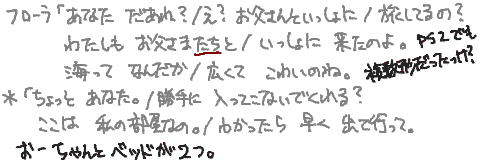 フローラ「あなた だあれ？/え？ お父さんといっしょに/旅してるの？
わたしも お父さまたちと/いっしょに 来たのよ。PS2でも複数形だったっけ？
海って なんだか/広くて こわいのね。
＊「ちょっと あなた。/勝手に 入ってこないでくれる？
ここは 私の部屋なの。/わかったら 早く 出て行って。
おーちゃんとベッドが2つ。